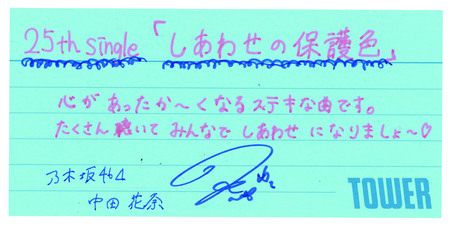 25th single 「しあわせの保護色」
心が あったか〜くなる ステキな曲です。
たくさん 聴いて みんなで しあわせ になりましょ〜♡
乃木坂46
中田 花奈
TOWER